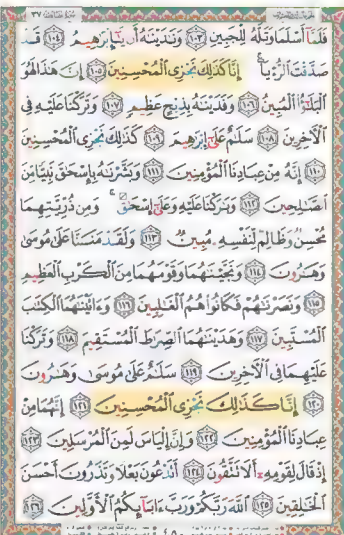 فَلَمَّآ أَسْلَمَا وَتَلَّهُۥ لِلْجَبِينِ ١٠٣ وَنَـٰدَيْنَـٰهُ أَن يَـٰٓإِبْرَٰهِيمُ ١٠٤ قَدْ
صَدَّقْتَ ٱلرُّءْيَآ ۚ إِنَّا كَذَٰلِكَ نَجْزِى ٱلْمُحْسِنِينَ ١٠٥ إِنَّ هَـٰذَا لَهُوَ
ٱلْبَلَـٰٓؤُا۟ ٱلْمُبِينُ ١٠٦ وَفَدَيْنَـٰهُ بِذِبْحٍ عَظِيمٍ ١٠٧ وَتَرَكْنَا عَلَيْهِ فِى
ٱلْـَٔاخِرِينَ ١٠٨ سَلَـٰمٌ عَلَىٰٓ إِبْرَٰهِيمَ ١٠٩ كَذَٰلِكَ نَجْزِى ٱلْمُحْسِنِينَ
١١٠ إِنَّهُۥ مِنْ عِبَادِنَا ٱلْمُؤْمِنِينَ ١١١ وَبَشَّرْنَـٰهُ بِإِسْحَـٰقَ نَبِيًّا مِّنَ
ٱلصَّـٰلِحِينَ ١١٢ وَبَـٰرَكْنَا عَلَيْهِ وَعَلَىٰٓ إِسْحَـٰقَ ۚ وَمِن ذُرِّيَّتِهِمَا
مُحْسِنٌ وَظَالِمٌ لِّنَفْسِهِۦ مُبِينٌ ١١٣ وَلَقَدْ مَنَنَّا عَلَىٰ مُوسَىٰ
وَهَـٰرُونَ ١١٤ وَنَجَّيْنَـٰهُمَا وَقَوْمَهُمَا مِنَ ٱلْكَرْبِ ٱلْعَظِيمِ
١١٥ وَنَصَرْنَـٰهُمْ فَكَانُوا۟ هُمُ ٱلْغَـٰلِبِينَ ١١٦ وَءَاتَيْنَـٰهُمَا ٱلْكِتَـٰبَ
ٱلْمُسْتَبِينَ ١١٧ وَهَدَيْنَـٰهُمَا ٱلصِّرَٰطَ ٱلْمُسْتَقِيمَ ١١٨ وَتَرَكْنَا
عَلَيْهِمَا فِى ٱلْـَٔاخِرِينَ ١١٩ سَلَـٰمٌ عَلَىٰ مُوسَىٰ وَهَـٰرُونَ
١٢٠ إِنَّا كَذَٰلِكَ نَجْزِى ٱلْمُحْسِنِينَ ١٢١ إِنَّهُمَا مِنْ
عِبَادِنَا ٱلْمُؤْمِنِينَ ١٢٢ وَإِنَّ إِلْيَاسَ لَمِنَ ٱلْمُرْسَلِينَ ١٢٣
إِذْ قَالَ لِقَوْمِهِۦٓ أَلَا تَتَّقُونَ ١٢٤ أَتَدْعُونَ بَعْلًا وَتَذَرُونَ أَحْسَنَ
ٱلْخَـٰلِقِينَ ١٢٥ ٱللَّهَ رَبَّكُمْ وَرَبَّ ءَابَآئِكُمُ ٱلْأَوَّلِينَ ١٢٦
٤٥٠